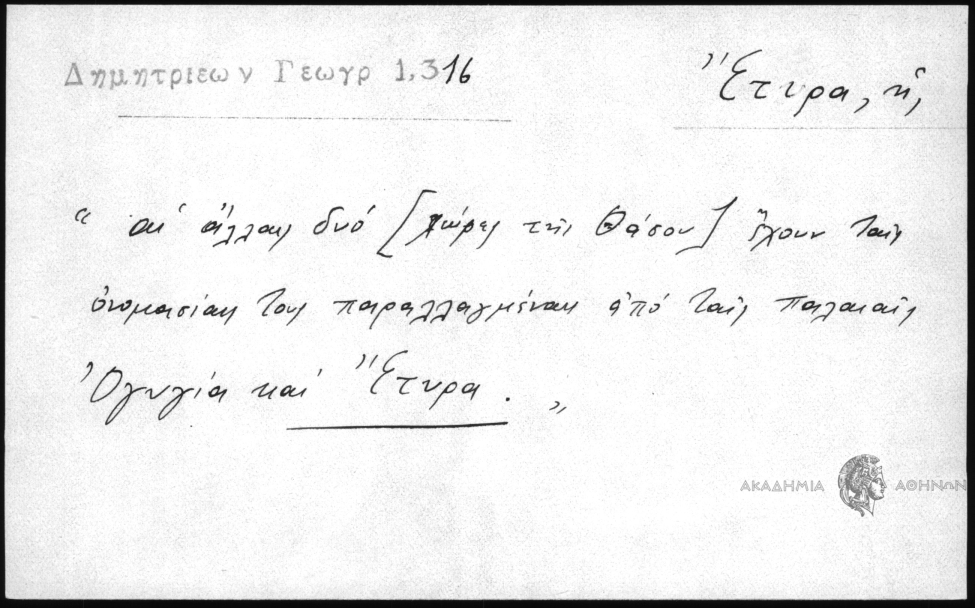 Δημητριεων Γεωγρ 1,316
Ἔτυρα, ἡ,
“ αἱ ἄλλαις δυό [χώρες τῆς Θάσου] ἔχουν ταῖς
ὀνομασίαις τους παραλλαγμέναις ἀπό ταῖς παλαιαῖς
Ὀγυγία καί Ἔτυρα. „
ΑΚΑΔΗΜΙΑ ΑΘΗΝΩΝ